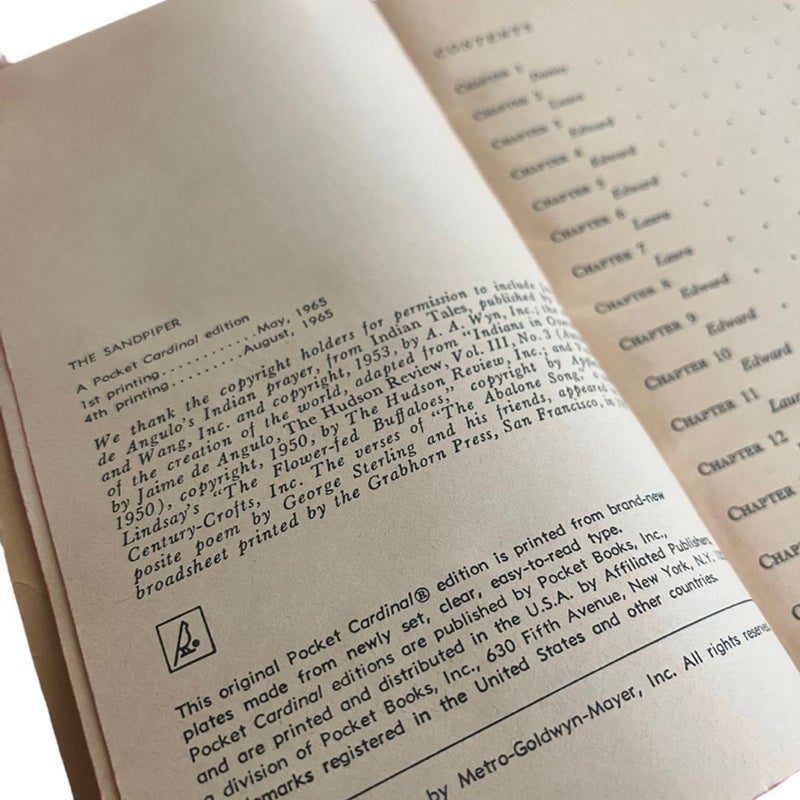 THE SANDPIPER
A Pocket Cardinal edition
1st printing............May, 1965
4th printing.........August, 1965
We thank the copyright holders for permission to include
de Angulo's Indian prayer, from Indian Tales, published by
and Wang, Inc. and copyright, 1953, by A. A. Wyn, Inc.; the
of the creation of the world, adapted from "Indians in
by Jaime de Angulo, The Hudson Review, Vol. III, No. 3
1950), copyright, 1950, by The Hudson Review, Inc.; and
Lindsay's "The Flower-fed Buffaloes," copyright by
Century-Crofts, Inc. The verses of "The Abalone Song,"
posite poem by George Sterling and his friends, appeared
broadsheet printed by the Grabhorn Press, San Francisco, in
This original Pocket Cardinal® edition is printed from brand-new
plates made from newly set, clear, easy-to-read type.
Pocket Cardinal editions are published by Pocket Books, Inc.,
and are printed and distributed in the U.S.A. by Affiliated
a division of Pocket Books, Inc., 630 Fifth Avenue, New York, N.Y.
registered in the United States and other countries.
by Metro-Goldwyn-Mayer, Inc. All rights
CONTENTS
CHAPTER 1 Danny
CHAPTER 2 Laura
CHAPTER 3 Edward
CHAPTER 4 Edward
CHAPTER 5 Edward
CHAPTER 6 Laura
CHAPTER 7 Laura
CHAPTER 8 Edward
CHAPTER 9 Edward
CHAPTER 10 Edward
CHAPTER 11
CHAPTER 12
CHAPTER